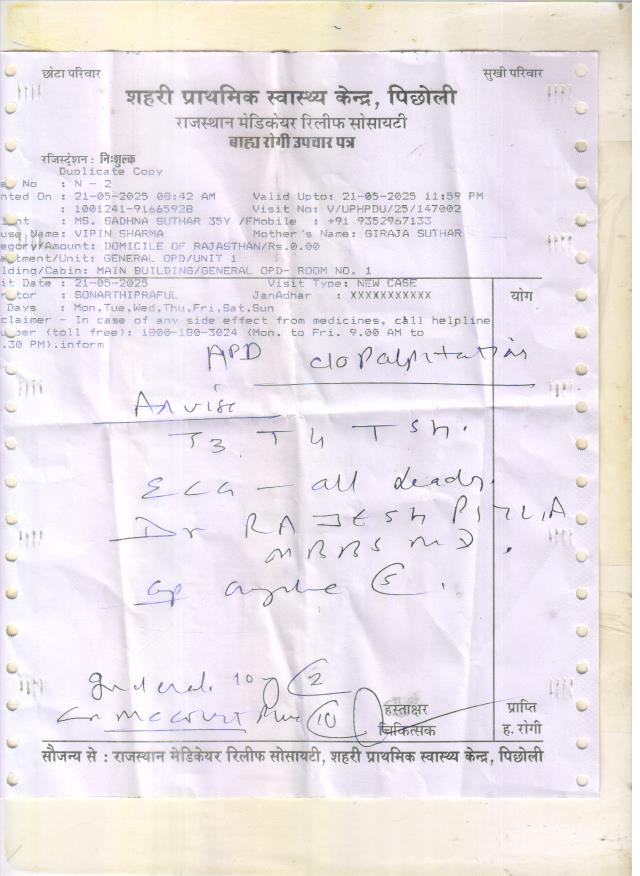 छोटा परिवार सुखी परिवार
शहरी प्राथमिक स्वास्थ्य केन्द्र, पिछोली
राजस्थान मेडिकेयर रिलीफ सोसायटी
बाह्य रोगी उपचार पत्र
रजिस्ट्रेशन : निःशुल्क
Duplicate Copy
No : N - 2
nted On : 21-05-2025 08:42 AM Valid Upto: 21-05-2025 11:59 PM
: 1001241-91665928 Visit No: V/UPHPDU/25/147002
: MS. SADHNA SUTHAR 35Y /FMobile : +91 9352967133
Name: VIPIN SHARMA Mother's Name: GIRAJA SUTHAR
egory/Amount: DOMICILE OF RAJASTHAN/Rs.0.00
tment/Unit: GENERAL OPD/UNIT 1
lding/Cabin: MAIN BUILDING/GENERAL OPD- ROOM NO. 1
it Date : 21-05-2025 Visit Type: NEW CASE
tor : SONARTHIPRAFUL JanAdhar : XXXXXXXXXXX योग
Days : Mon,Tue,Wed,Thu,Fri,Sat,Sun
claimer - In case of any side effect from medicines, call helpline
ber (toll free): 1800-180-3024 (Mon. to Fri. 9.00 AM to
.30 PM).inform
APD c/o Palpitation
Advise
T3 T4 TSH.
ECG - all leads.
Dr RAJESH
MBBS MD.
5
10 2
10
हस्ताक्षर प्राप्ति
चिकित्सक ह. रोगी
सौजन्य से : राजस्थान मेडिकेयर रिलीफ सोसायटी, शहरी प्राथमिक स्वास्थ्य केन्द्र, पिछोली